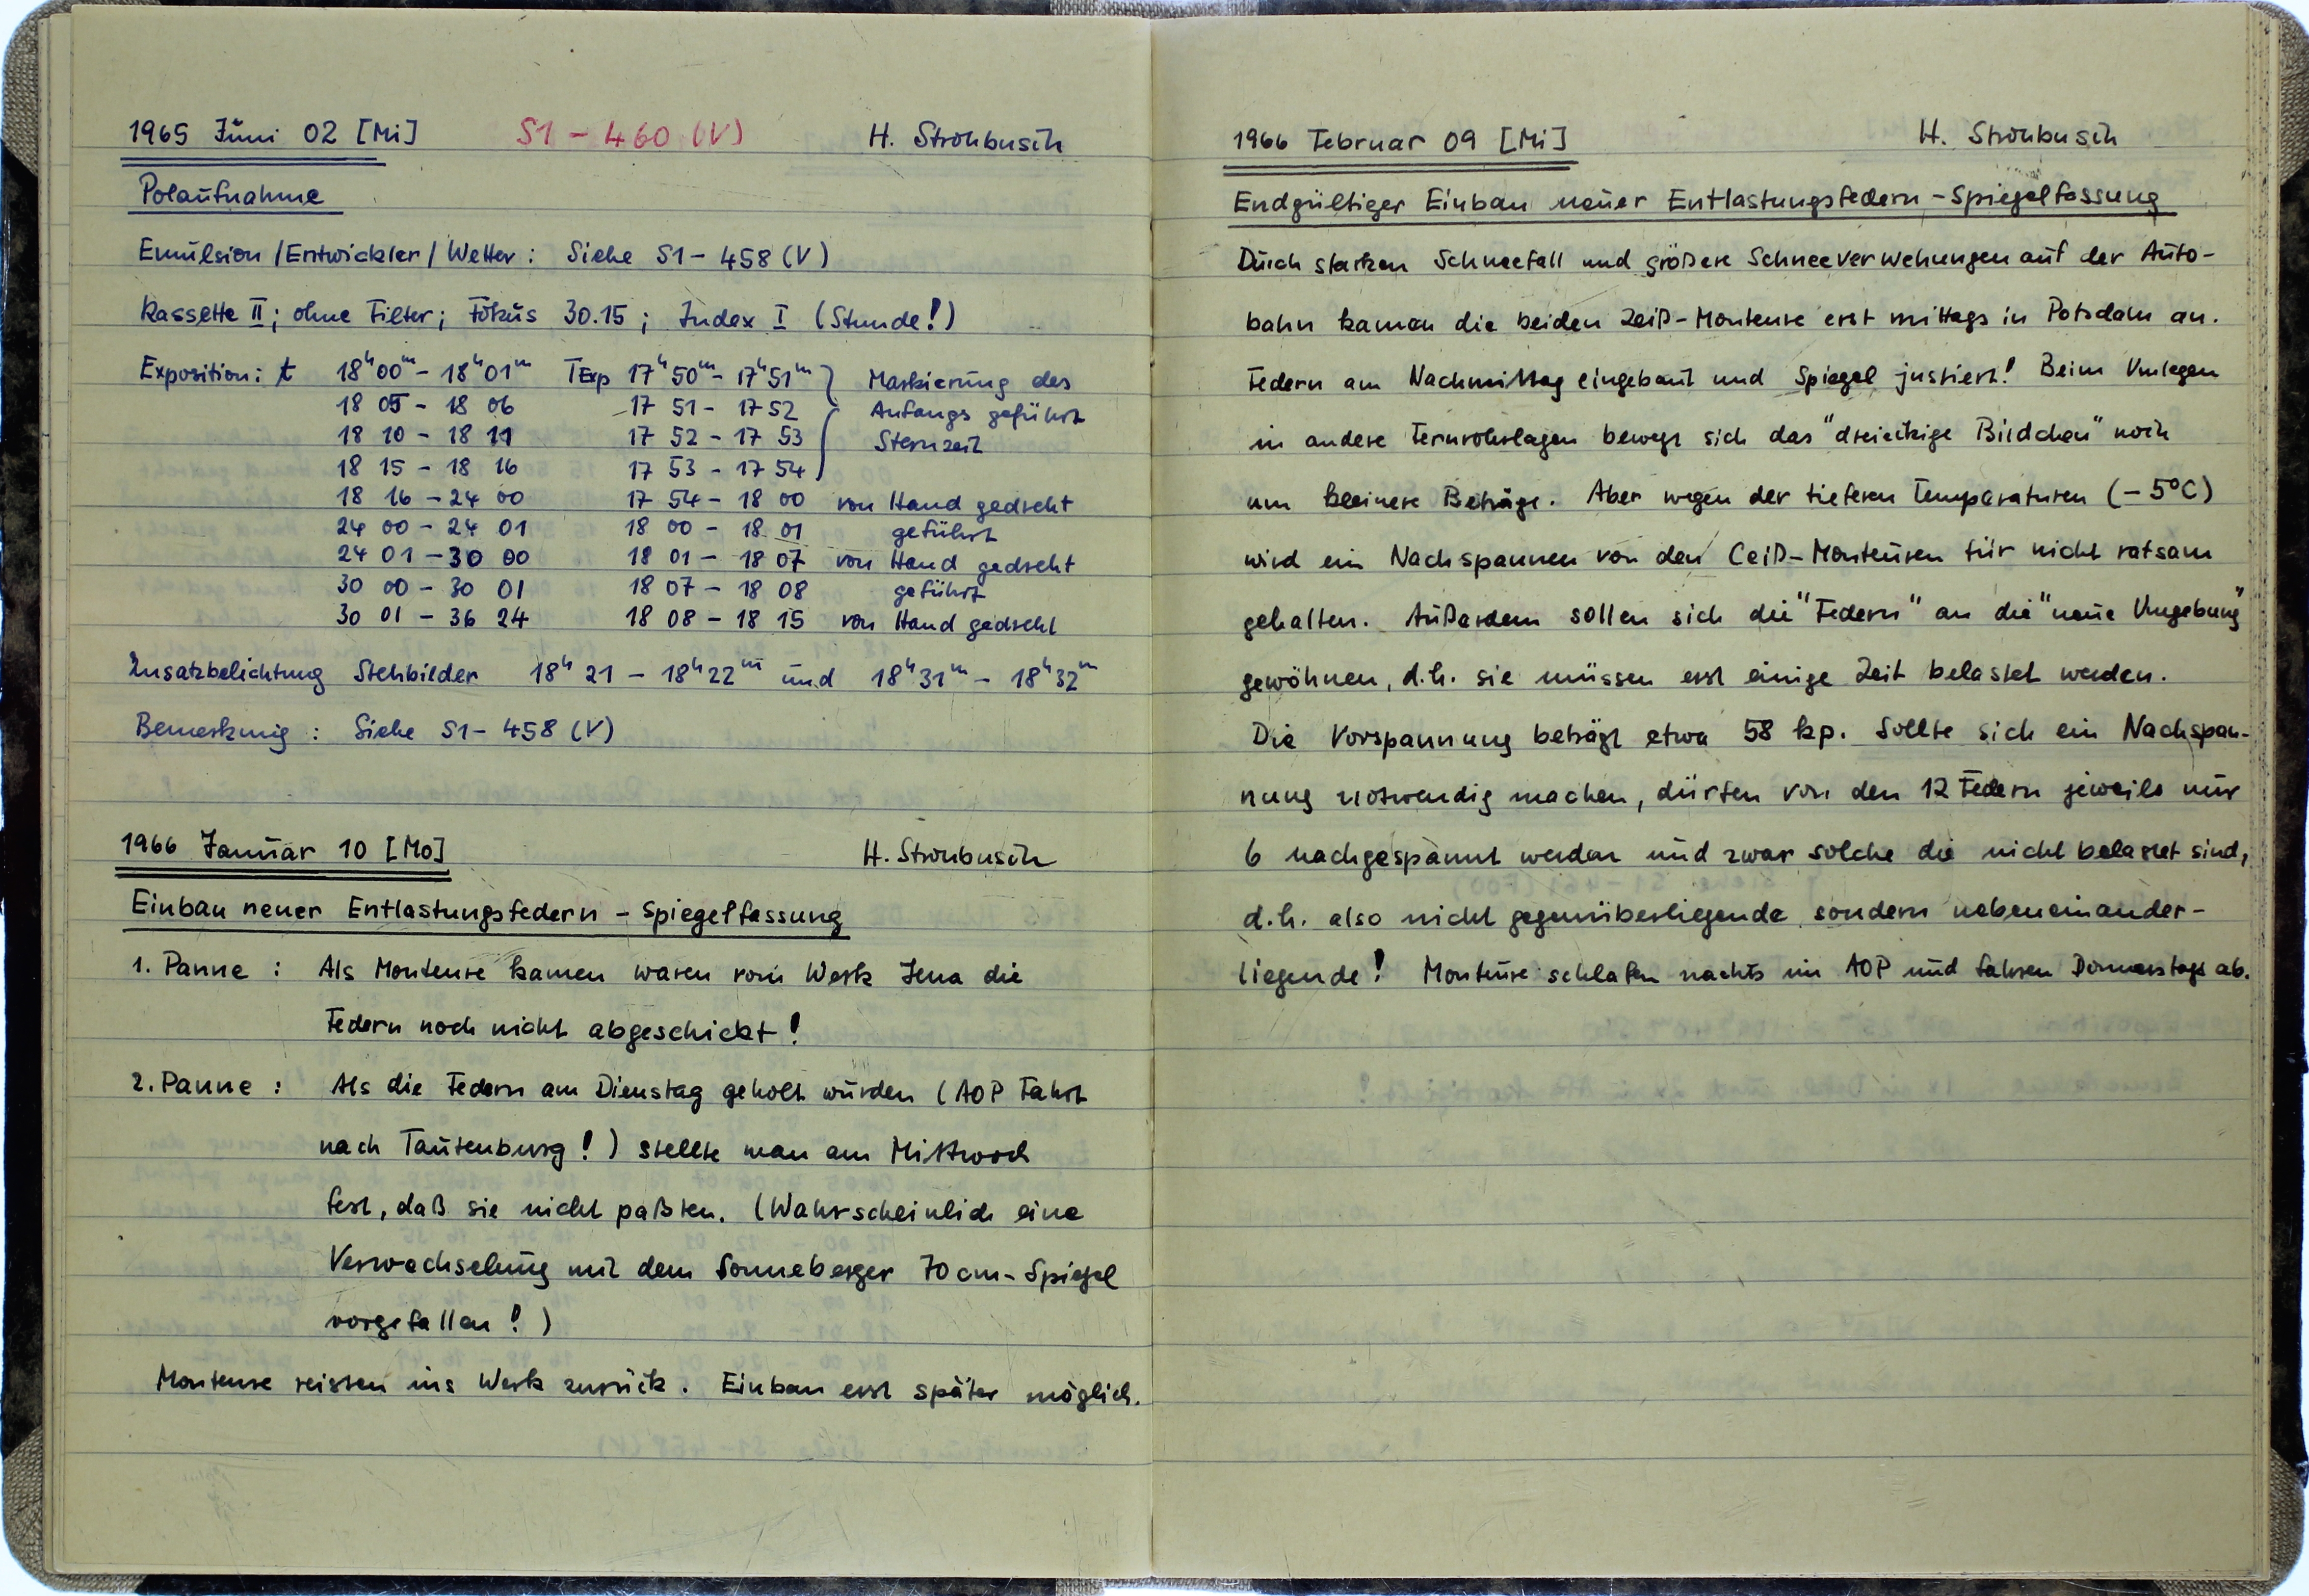 1965 Juni 02 [Mi] S1 - 460 (V) H. Strohbusch
Polaufnahme
Emulsion / Entwickler / Wetter : Siehe S1 - 458 (V)
Kassette II ; ohne Filter ; Fokus 30.15 ; Index I (Stunde!)
Exposition : t 18h00m - 18h01m TExp 17h50m - 17h51m } Markierung des
18 05 - 18 06 17 51 - 17 52 Anfangs geführt
18 10 - 18 11 17 52 - 17 53 Sternzeit
18 15 - 18 16 17 53 - 17 54
18 16 - 24 00 17 54 - 18 00 von Hand gedreht
24 00 - 24 01 18 00 - 18 01 geführt
24 01 - 30 00 18 01 - 18 07 von Hand gedreht
30 00 - 30 01 18 07 - 18 08 geführt
30 01 - 36 24 18 08 - 18 15 von Hand gedreht
Zusatzbelichtung Stehbilder 18h 21 - 18h22m und 18h31m - 18h32m
Bemerkung : Siehe S1 - 458 (V)
1966 Januar 10 [Mo] H. Strohbusch
Einbau neuer Entlastungsfedern - Spiegelfassung
1. Panne : Als Monteure kamen waren vom Werk Jena die
Federn noch nicht abgeschickt !
2. Panne : Als die Federn am Dienstag geholt wurden (AOP Fahrt
nach Tautenburg ! ) stellte man am Mittwoch
fest, daß sie nicht paßten. (Wahrscheinlich eine
Verwechselung mit dem Sonneberger 70 cm - Spiegel
vorgefallen ! )
Monteure reisten ins Werk zurück . Einbau erst später möglich.
1966 Februar 09 [Mi] H. Strohbusch
Endgültiger Einbau neuer Entlastungsfedern - Spiegelfassung
Durch starken Schneefall und größere Schneeverwehungen auf der Auto-
bahn kamen die beiden Zeiß-Monteure erst mittags in Potsdam an.
Federn am Nachmittag eingebaut und Spiegel justiert! Beim Umlegen
in andere Fernrohrlagen bewegt sich das "dreieckige Bildchen" noch
um kleinere Beträge. Aber wegen der tieferen Temperaturen (-5°C)
wird ein Nachspannen von den Ceiß-Monteuren für nicht ratsam
gehalten. Außerdem sollen sich die "Federn" an die "neue Umgebung"
gewöhnen, d.h. sie müssen erst einige Zeit belastet werden.
Die Vorspannung beträgt etwa 58 kp. Sollte sich ein Nachspan-
nung notwendig machen, dürfen von den 12 Federn jeweils nur
6 nachgespannt werden und zwar solche die nicht belastet sind,
d.h. also nicht gegenüberliegende sondern nebeneinander-
liegende! Monteure schlafen nachts im AOP und fahren Donnerstags ab.